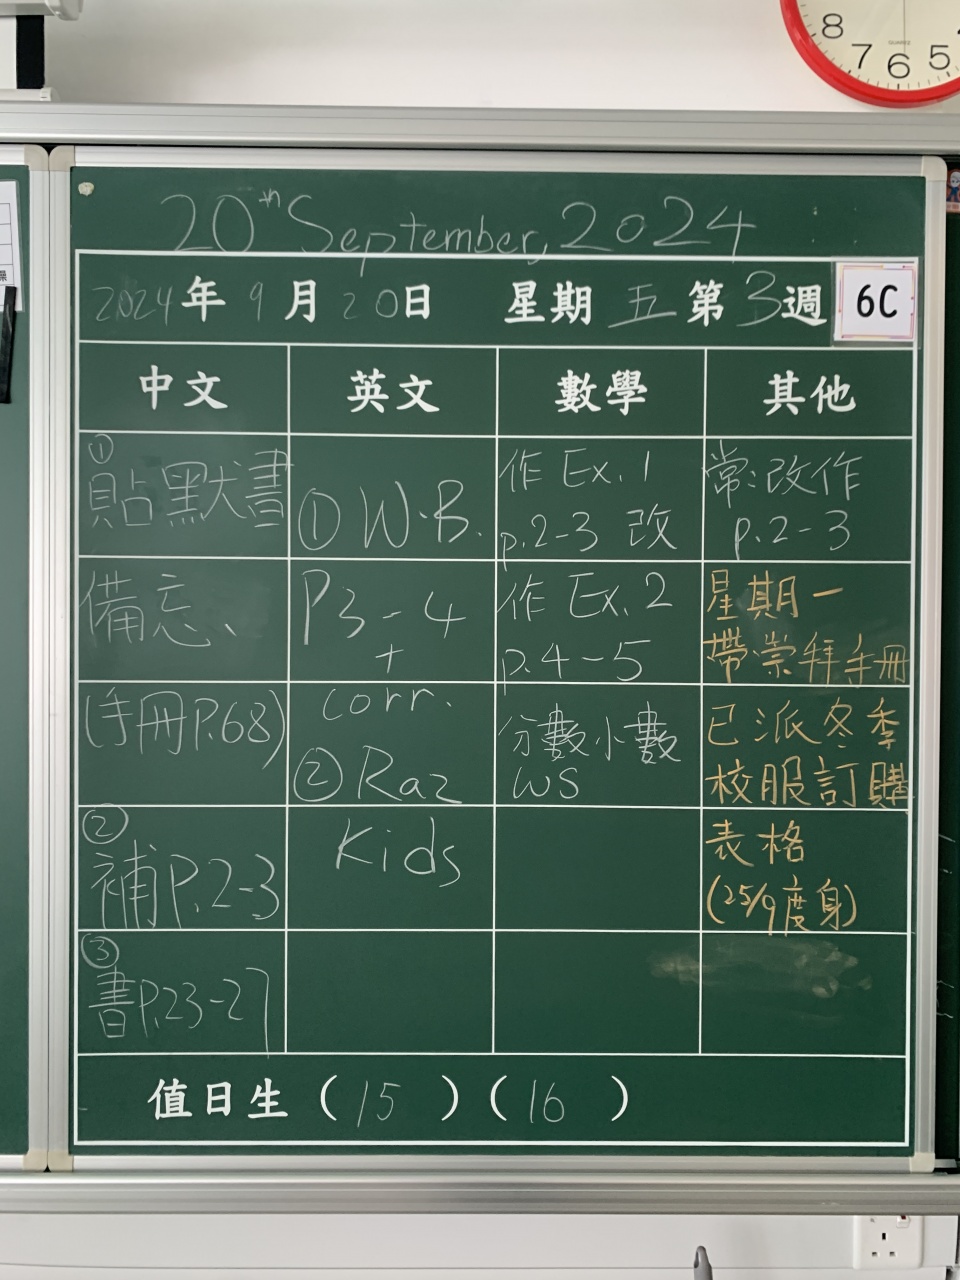 8 7 6 5
QUARTZ
20th September, 2024
2024年 9月 20日 星期 五 第 3週 6C
中文 英文 數學 其他
①
貼默書
備忘、
(手冊P.68)
②
補P.2-3
③
書P.23-27
① W.B.
P3-4
+
corr.
② Raz
Kids
作 Ex. 1
p.2-3 改
作 Ex. 2
p.4-5
分數小數
WS
常:改作
p.2-3
星期一
帶崇拜手冊
已派冬季
校服訂購
表格
(25/9度身)
值日生 (15) (16)